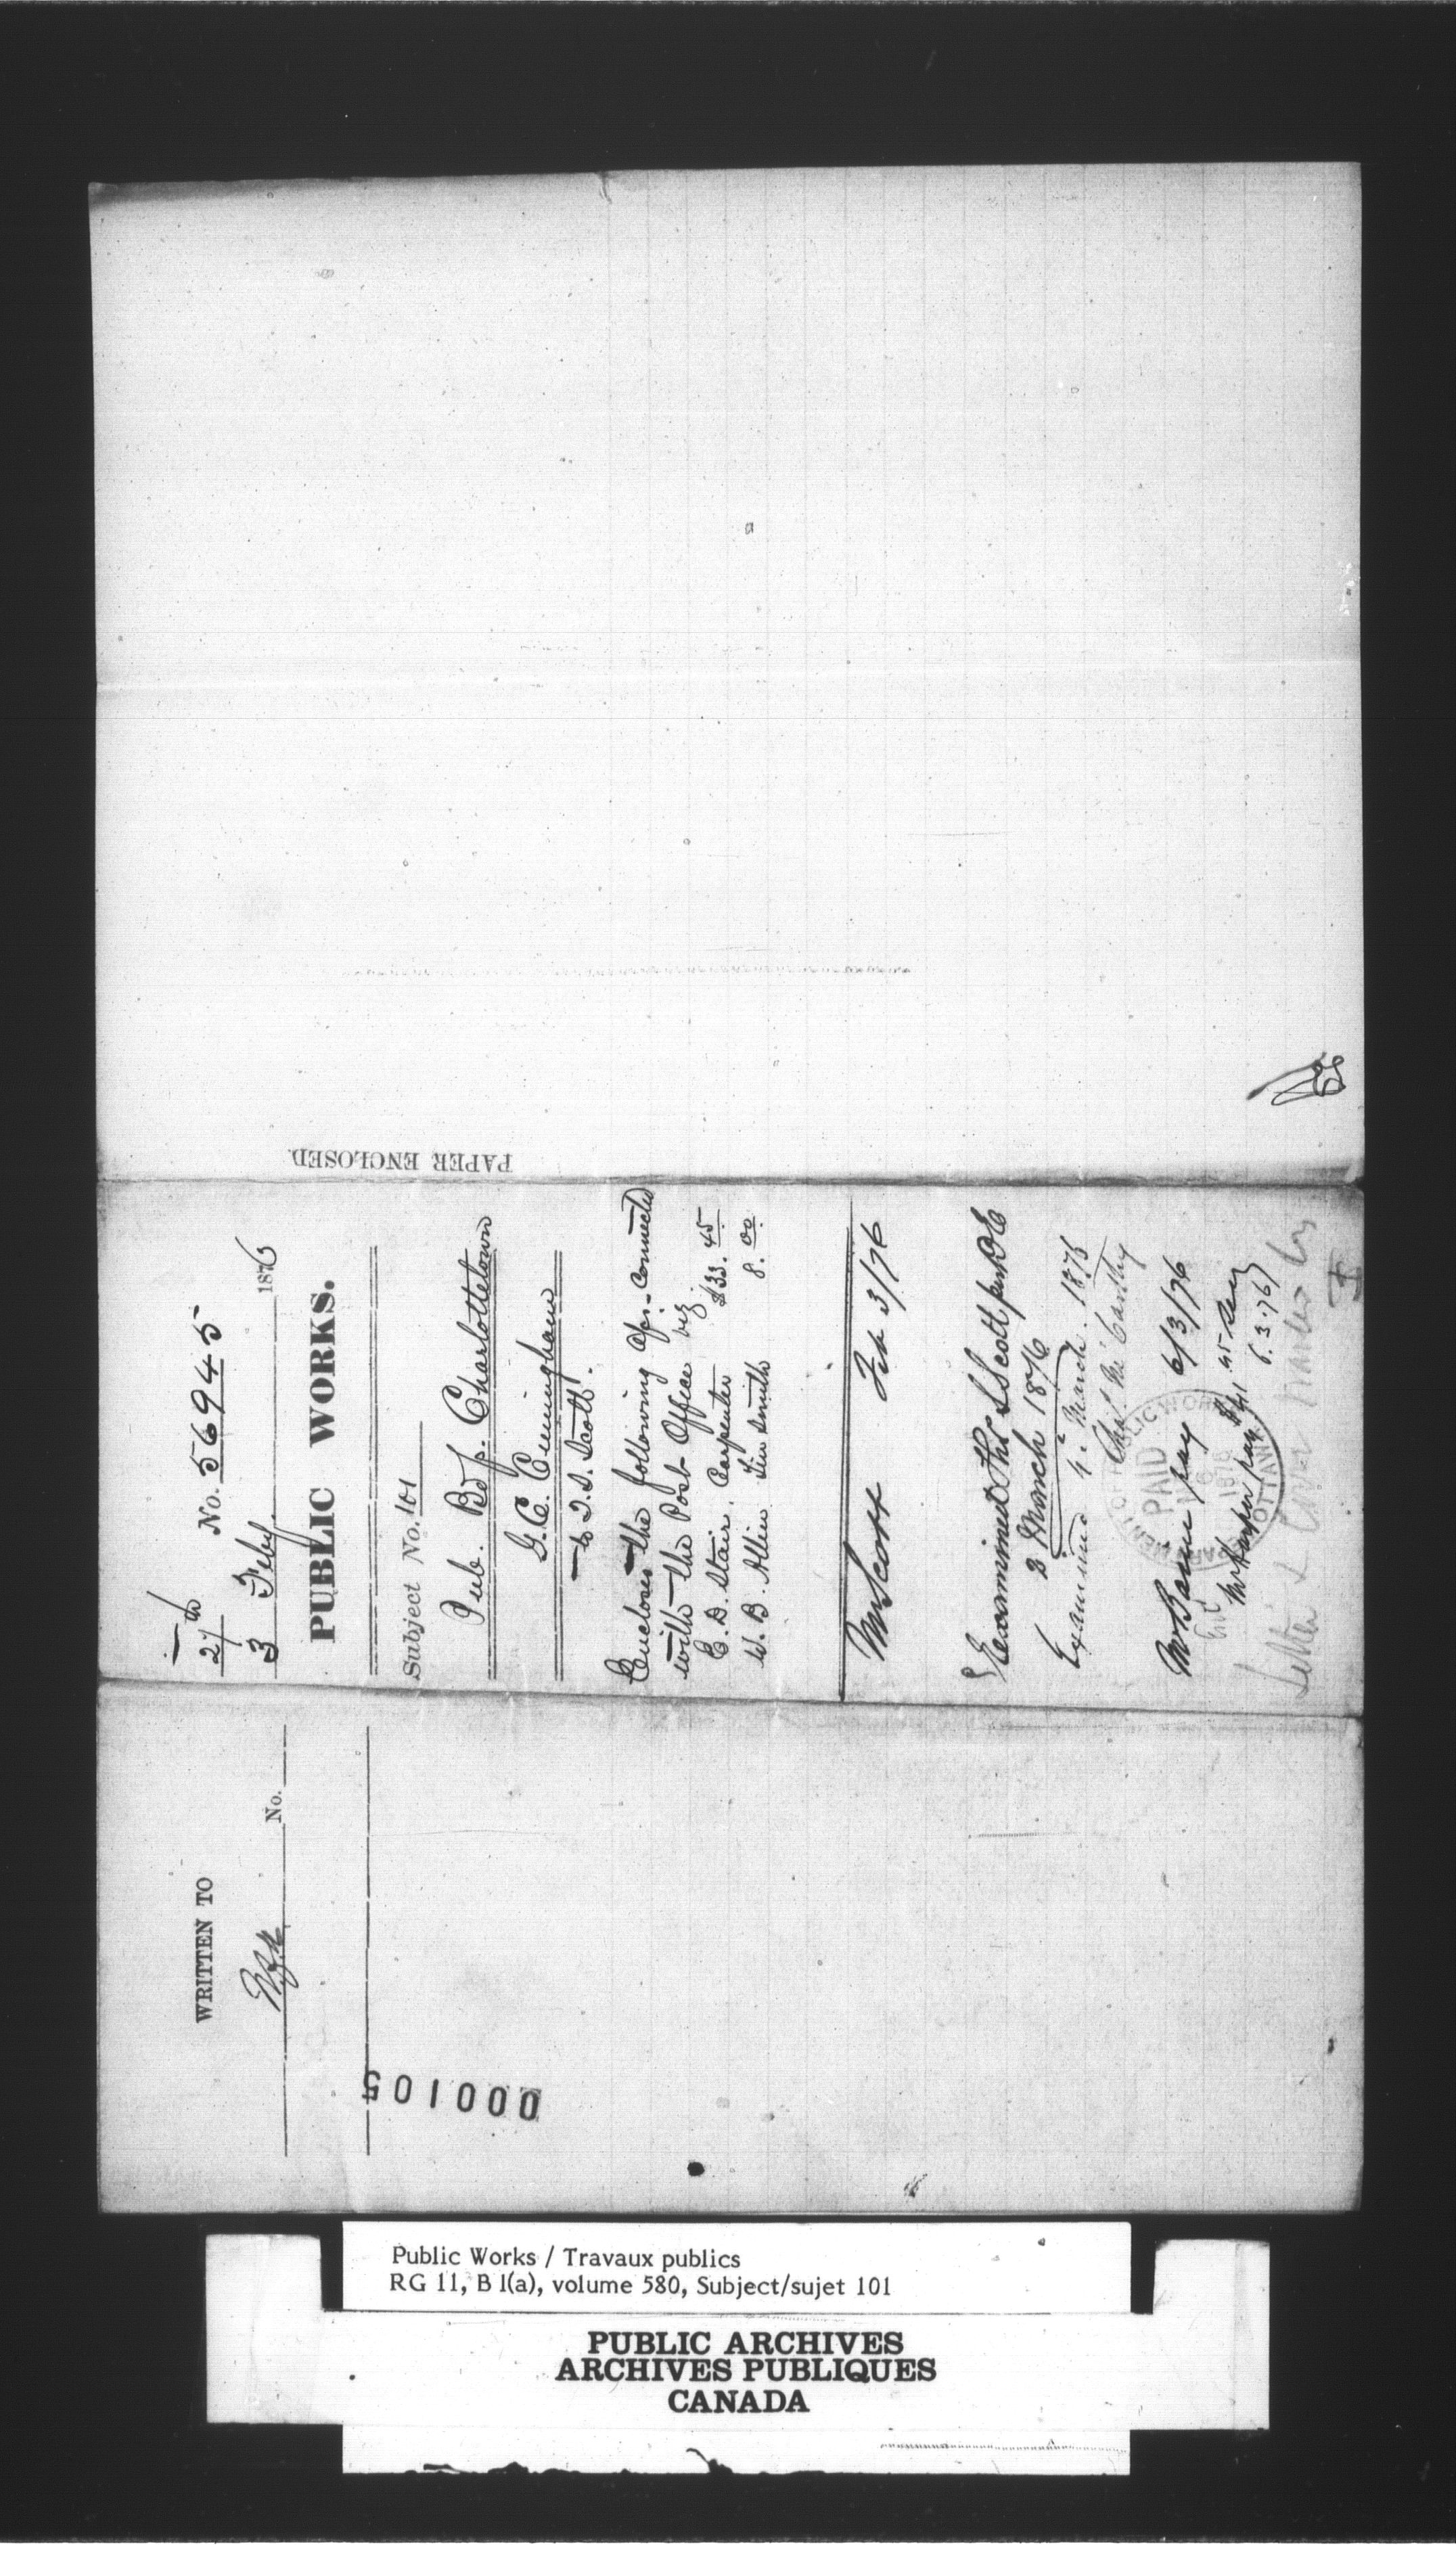 27th
No. 56945
3 Feby. 1876
PUBLIC WORKS.
Subject No. 101
Pub. Bdgs. Charlottetown
G. C. Cunningham
to T. S. Scott.
Encloses the following a/cs. connected
with the Post Office viz
C. D. Stair. Carpenter $33.45
W. B. Allin Tin smith 8.00
Mr Scott Feb 3/76
Examined Thos S Scott per DE
2 March 1876
Examined 4 March. 1876
Chas. McCarthy
Mr Baine pay 6/3/76
Mr Harper pay $41 45
6.3.76
PAID
1876
OTTAWA
Letter &
PAPER ENCLOSED.
WRITTEN TO
No.
000105
Public Works / Travaux publics
RG 11, B 1(a), volume 580, Subject/sujet 101
PUBLIC ARCHIVES
ARCHIVES PUBLIQUES
CANADA